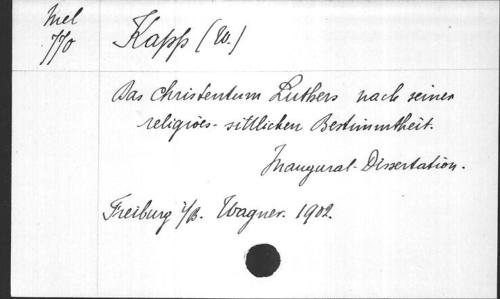 Mel
770
Kapp (W.)
Das Christentum Luthers nach seiner
religiös-sittlichen Bestimmtheit.
Inaugural-Dissertation.
Freiburg i/B. Wagner. 1902.